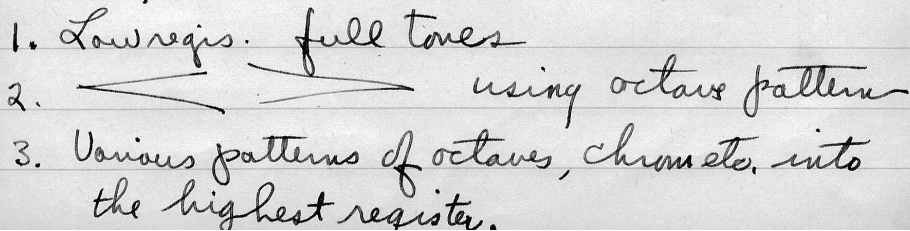 1. Low regis. full tones
2. < > using octave pattern
3. Various patterns of octaves, chrom etc. into
the highest register.